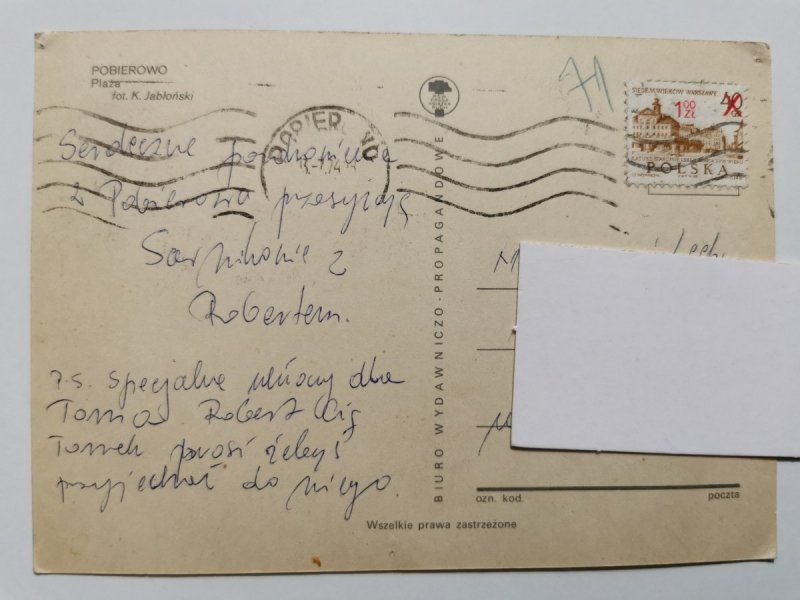 POBIEROWO
Plaża
fot. K. Jabłoński
71
SIEDEM WIEKÓW WARSZAWY
40
1 00
ZŁ
POLSKA
Serdeczne pozdrowienia
z Pobierowa przesyłają
z
Robertem.
P.S. specjalne dla
Tomka Robert Cię
Tomek prosi żebyś
przyjechał do niego
BIURO WYDAWNICZO-PROPAGANDOWE
ozn. kod.
poczta
Wszelkie prawa zastrzeżone